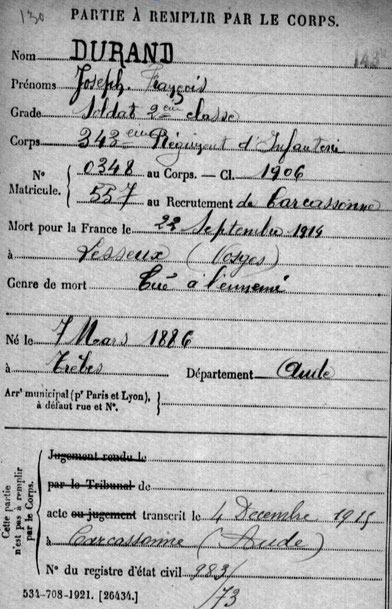 130
PARTIE À REMPLIR PAR LE CORPS.
Nom DURAND
Prénoms Joseph François
Grade Soldat 2eme classe
Corps 343eme Régiment d'Infanterie
N° Matricule. { 0348 au Corps. — Cl. 1906
557 au Recrutement de Carcassonne
Mort pour la France le 22 Septembre 1914
à Lesseux (Vosges)
Genre de mort Tué à l'ennemi
Né le 7 Mars 1886
à Trèbes Département Aude
Arrt municipal (pr Paris et Lyon),
à défaut rue et N°.
Cette partie
n'est pas à remplir
par le Corps.
Jugement rendu le
par le Tribunal de
acte ou jugement transcrit le 4 Decembre 1915
à Carcassonne (Aude)
N° du registre d'état civil 983/
/73
534-708-1921. [26434.]